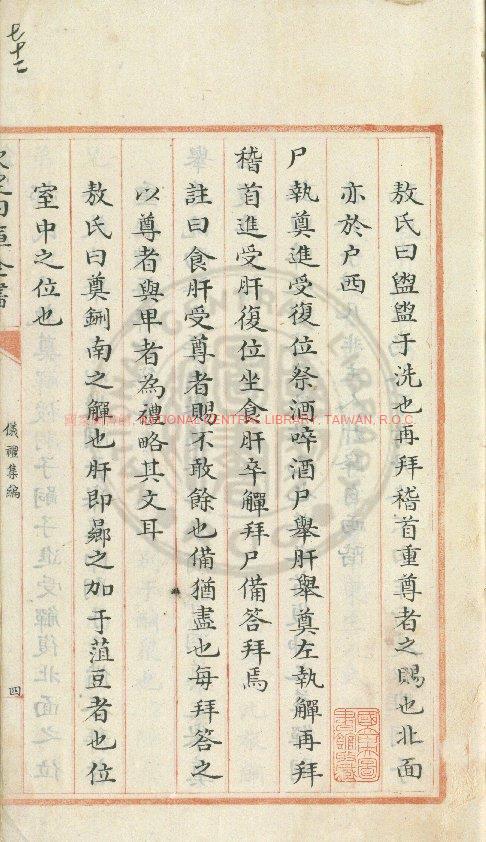 七十二
敖氏曰盥盥于洗也再拜稽首重尊者之賜也北面
亦於户西
尸執奠進受復位祭酒啐酒尸舉肝舉奠左執觶再拜
稽首進受肝復位坐食肝卒觶拜尸備答拜焉
註曰食肝受尊者賜不敢餘也備猶盡也每拜答之
以尊者與卑者為禮略其文耳
敖氏曰奠鉶南之觶也肝即曏之加于菹豆者也位
室中之位也
儀禮集編
四
NATIONAL CENTRAL LIBRARY, TAIWAN, R.O.C